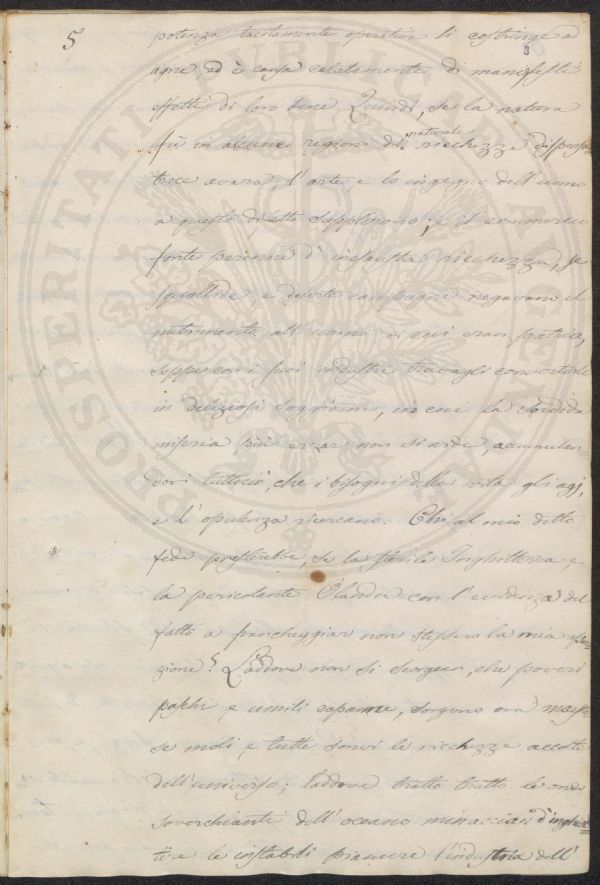 5
3
potenza tacitamente operatrice li costringe ad
agire ed è causa celatamente di manifesti
effetti di loro bene. Quindi, se la natura
fù in alcune regioni di naturale ricchezza dispensa=
trice avara, l'arte e lo ingegno dell'uomo
a questo difetto supplirono; e il commercio
fonte perenne d'inesausta ricchezza, se
squallide e deserte campagne negavano il
nutrimento all'uomo, di cui eran patria,
seppe con i suoi industri travagli convertirle
in deliziosi soggiorni, in cui la sordida
miseria più errar non si vede, accumulan
dovi tuttociò, che i bisogni della vita gli agj,
e l'opulenza ricercano. Chi al mio detto
fede presterebbe, se la sterile Inghilterra e
la pericolante Olanda con l'evidenza del
fatto a francheggiar non stessero la mia
zione? Laddove non si scorgean, che poveri
paschi e umili capanne, sorgono ora maes
se moli, e tutte sonvi le ricchezze accolte
dell'universo; laddove tratto tratto le onde
soverchiante dell'oceano minaccian d'inghiot
tire le instabili pianure l'industria dell'
PROSPERITATI PUBLICAE AUGENDAE